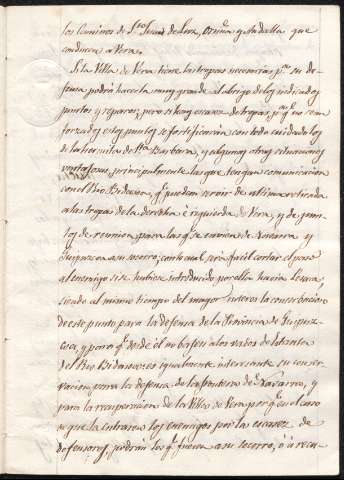 los Caminos de Sn Juan de Luz, Oruña y Andalla que
conducen a Vera.
Si la Villa de Vera tiene las tropas necesarias pa. su de-
fensa podrá hacerla muy grande al abrigo de los indicados
puntos y reparos; pero si hay escasez de tropas, pa. qe. no sean
forzados estos puntos se fortificarán con todo cuidado los
de la hermita de Sta. Barbara, y algunas otras situaciones
ventajosas, principalmente las que tengan comunicacion
con el Rio Bidasoa, qe. puedan servir de ultima retirada
a las tropas de la derecha é izquierda de Vera, y de pun-
tos de reunion para las qe. se envien de Navarra y
Guipuzcoa a su socorro; con lo cual será facil cortar el paso
al enemigo si se hubiese introducido por ella hacia Lesaca,
siendo al mismo tiempo del mayor interes la conserbacion
de este punto para la defensa de la Provincia de Guipuz-
coa, y para qe. desde él no bajen a los vados de
del Rio Bidasoa es igualmente interesante su conser-
vacion para la defensa de la frontera de Navarra, y
para la recuperacion de la Villa de Vera porqe. en el caso
se que la entrasen los enemigos por la escasez de
defensores, podrán los qe. fuesen a su socorro, ó a recu-